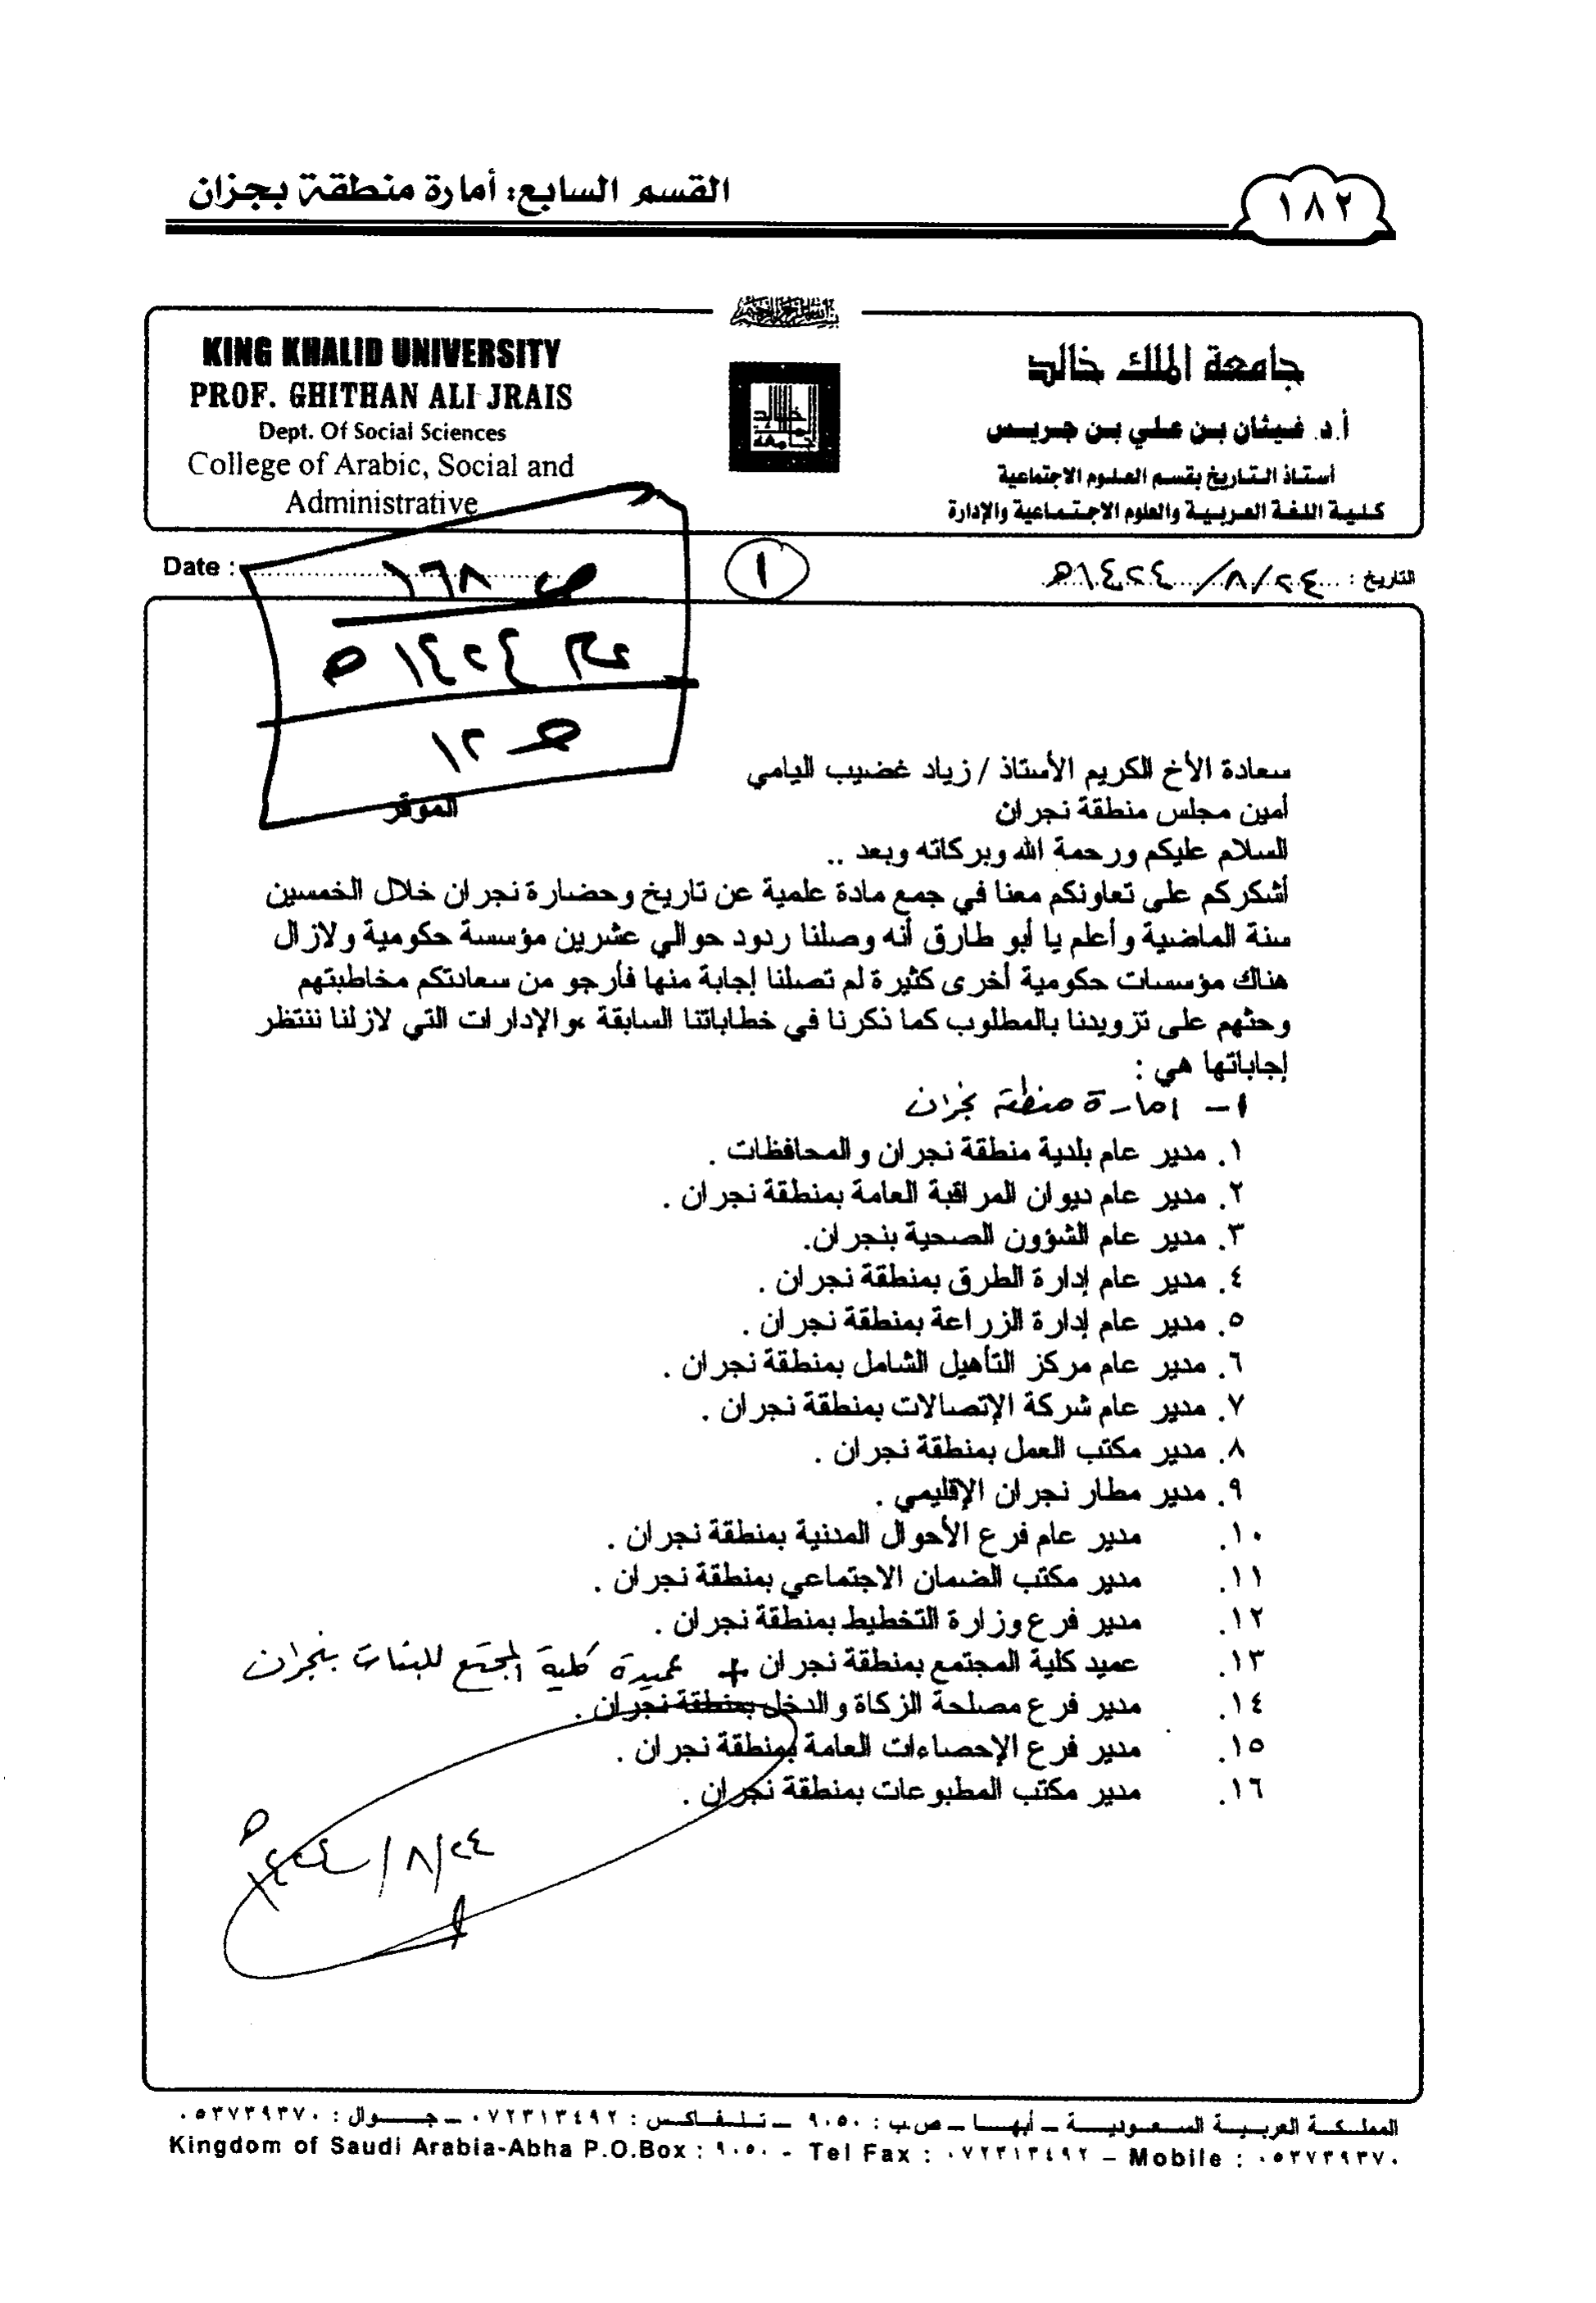 القسم السابع: أمارة منطقة بجزان
١٨٢
بسم الله الرحمن الرحيم
KING KHALID UNIVERSITY
PROF. GHITHAN ALI JRAIS
Dept. Of Social Sciences
College of Arabic, Social and
Administrative
جامعة الملك خالد
أ.د. غيثان بن علي بن جريس
أستاذ التاريخ بقسم العلوم الاجتماعية
كلية اللغة العربية والعلوم الاجتماعية والإدارة
التاريخ : ٢٤/٨/١٤٢٤هـ
١
Date :
ص ١٦٨
١٤٢٤ هـ
١٢
سعادة الأخ الكريم الأستاذ / زياد غضيب اليامي
أمين مجلس منطقة نجران الموقر
السلام عليكم ورحمة الله وبركاته وبعد ..
أشكركم على تعاونكم معنا في جمع مادة علمية عن تاريخ وحضارة نجران خلال الخمسين
سنة الماضية وأعلم يا أبو طارق أنه وصلنا ردود حوالي عشرين مؤسسة حكومية ولازال
هناك مؤسسات حكومية أخرى كثيرة لم تصلنا إجابة منها فأرجو من سعادتكم مخاطبتهم
وحثهم على تزويدنا بالمطلوب كما ذكرنا في خطاباتنا السابقة ،والإدارات التي لازلنا ننتظر
إجاباتها هي :
١- إمارة منطقة نجران
١. مدير عام بلدية منطقة نجران والمحافظات .
٢. مدير عام ديوان المراقبة العامة بمنطقة نجران .
٣. مدير عام الشؤون الصحية بنجران.
٤. مدير عام إدارة الطرق بمنطقة نجران .
٥. مدير عام إدارة الزراعة بمنطقة نجران .
٦. مدير عام مركز التأهيل الشامل بمنطقة نجران .
٧. مدير عام شركة الإتصالات بمنطقة نجران .
٨. مدير مكتب العمل بمنطقة نجران .
٩. مدير مطار نجران الإقليمي .
١٠. مدير عام فرع الأحوال المدنية بمنطقة نجران .
١١. مدير مكتب الضمان الاجتماعي بمنطقة نجران .
١٢. مدير فرع وزارة التخطيط بمنطقة نجران .
١٣. عميد كلية المجتمع بمنطقة نجران + عميدة كلية المجتمع للبنات بنجران
١٤. مدير فرع مصلحة الزكاة والدخل بمنطقة نجران .
١٥. مدير فرع الإحصاءات العامة بمنطقة نجران .
١٦. مدير مكتب المطبوعات بمنطقة نجران .
٢٤/٨/١٤٢٤هـ
المملكة العربية السعودية – أبها – ص.ب : ٩٠٥٠ – تلفاكس : ٠٧٢٣١٣٤٩٢ – جوال : ٠٥٣٧٣٩٣٧٠
Kingdom of Saudi Arabia-Abha P.O.Box : ٩٠٥٠ - Tel Fax : ٠٧٢٣١٣٤٩٢ – Mobile : ٠٥٣٧٣٩٣٧٠